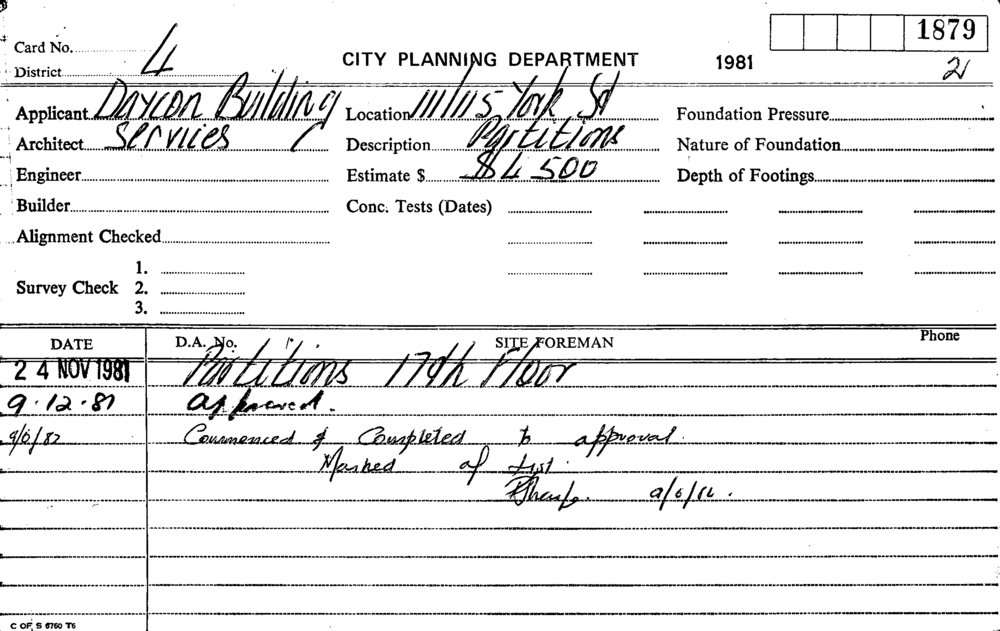 1879
Card No. 4
District
CITY PLANNING DEPARTMENT 1981 2
Applicant Daycon Building Location 111/115 York St Foundation Pressure
Architect Services Description Partitions Nature of Foundation
Engineer Estimate $ $4 500 Depth of Footings
Builder Conc. Tests (Dates)
Alignment Checked
1.
Survey Check 2.
3.
DATE D.A. No. SITE FOREMAN Phone
24 NOV 1981 Partitions 17th Floor
9.12.81 approved.
9/6/82 Commenced & Completed to approval.
Marked of List.
9/6/82.
C OF S 6760 T6